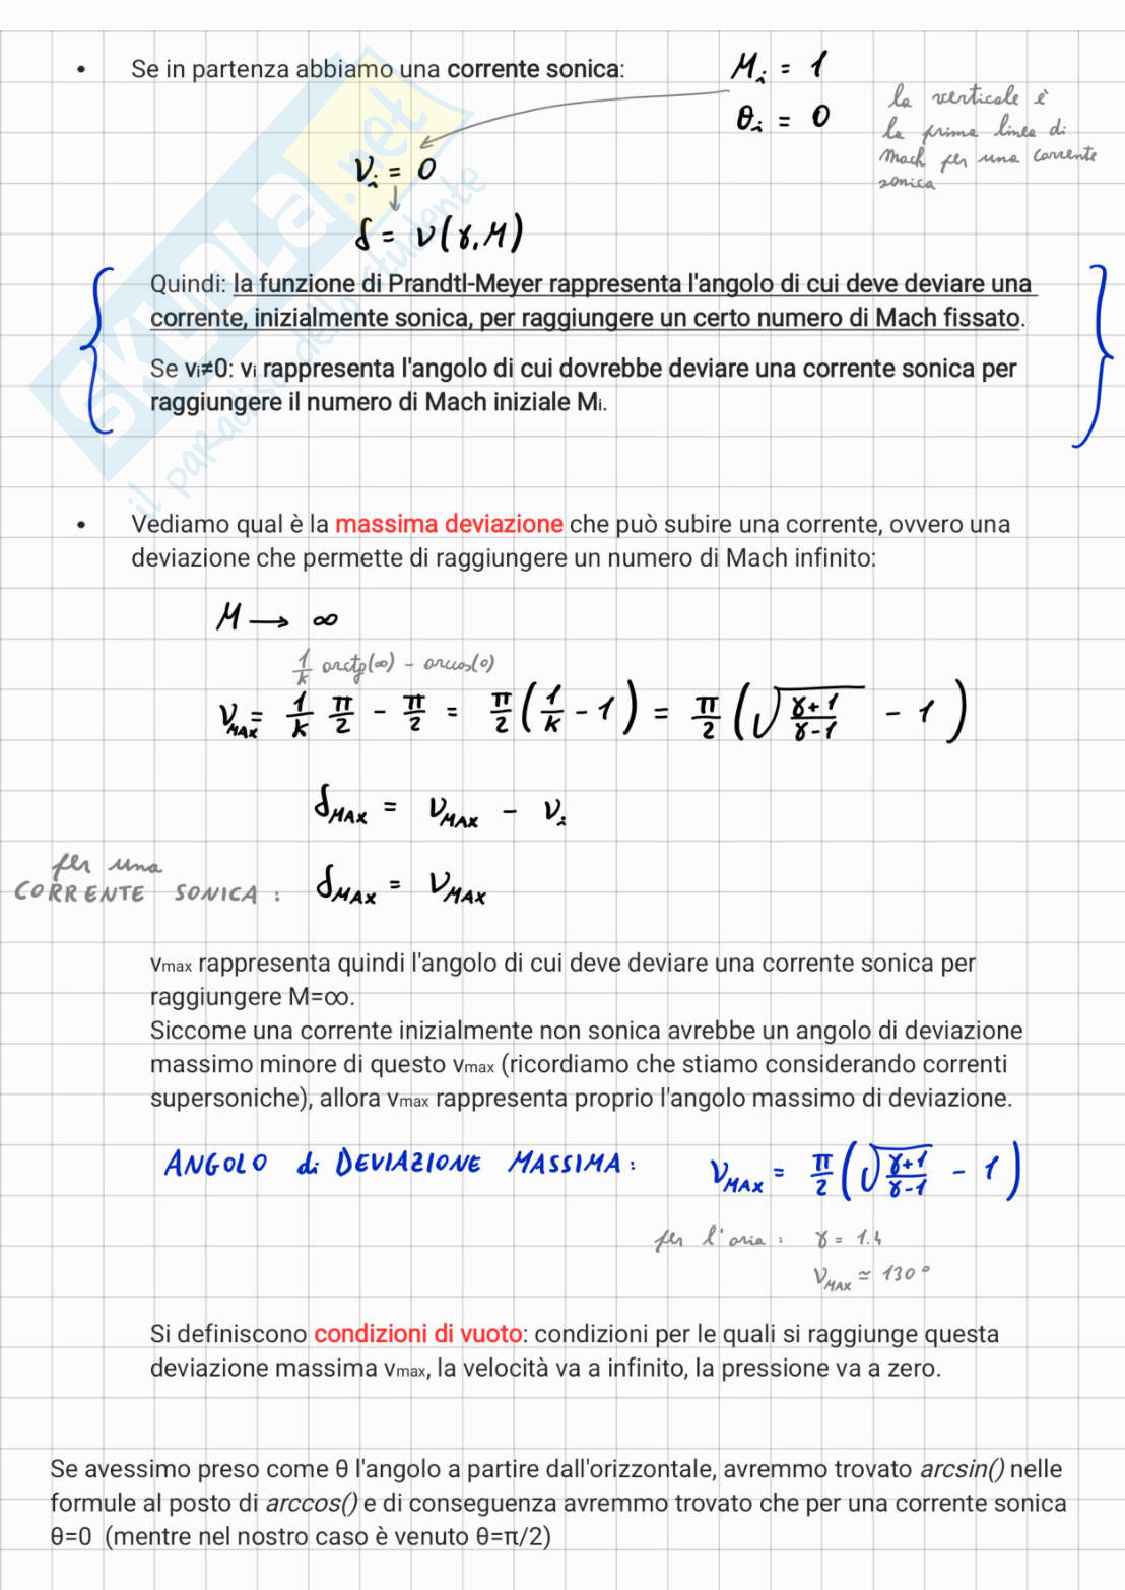 • Se in partenza abbiamo una corrente sonica: M_i = 1
θ_i = 0
la verticale è
la prima linea di
Mach per una corrente
sonica
ν_i = 0
δ = ν(γ, M)
Quindi: la funzione di Prandtl-Meyer rappresenta l'angolo di cui deve deviare una
corrente, inizialmente sonica, per raggiungere un certo numero di Mach fissato.
Se νi≠0: νi rappresenta l'angolo di cui dovrebbe deviare una corrente sonica per
raggiungere il numero di Mach iniziale Mi.
SKUOLA.net
il paradiso dello studente
• Vediamo qual è la massima deviazione che può subire una corrente, ovvero una
deviazione che permette di raggiungere un numero di Mach infinito:
M → ∞
1/k arctg(∞) - arccos(0)
ν_MAX = 1/k π/2 - π/2 = π/2 (1/k - 1) = π/2 (√(γ+1/γ-1) - 1)
δ_MAX = ν_MAX - ν_i
per una
CORRENTE SONICA: δ_MAX = ν_MAX
νmax rappresenta quindi l'angolo di cui deve deviare una corrente sonica per
raggiungere M=∞.
Siccome una corrente inizialmente non sonica avrebbe un angolo di deviazione
massimo minore di questo νmax (ricordiamo che stiamo considerando correnti
supersoniche), allora νmax rappresenta proprio l'angolo massimo di deviazione.
ANGOLO di DEVIAZIONE MASSIMA: ν_MAX = π/2 (√(γ+1/γ-1) - 1)
per l'aria: γ = 1.4
ν_MAX ≃ 130°
Si definiscono condizioni di vuoto: condizioni per le quali si raggiunge questa
deviazione massima νmax, la velocità va a infinito, la pressione va a zero.
Se avessimo preso come θ l'angolo a partire dall'orizzontale, avremmo trovato arcsin() nelle
formule al posto di arccos() e di conseguenza avremmo trovato che per una corrente sonica
θ=0 (mentre nel nostro caso è venuto θ=π/2)